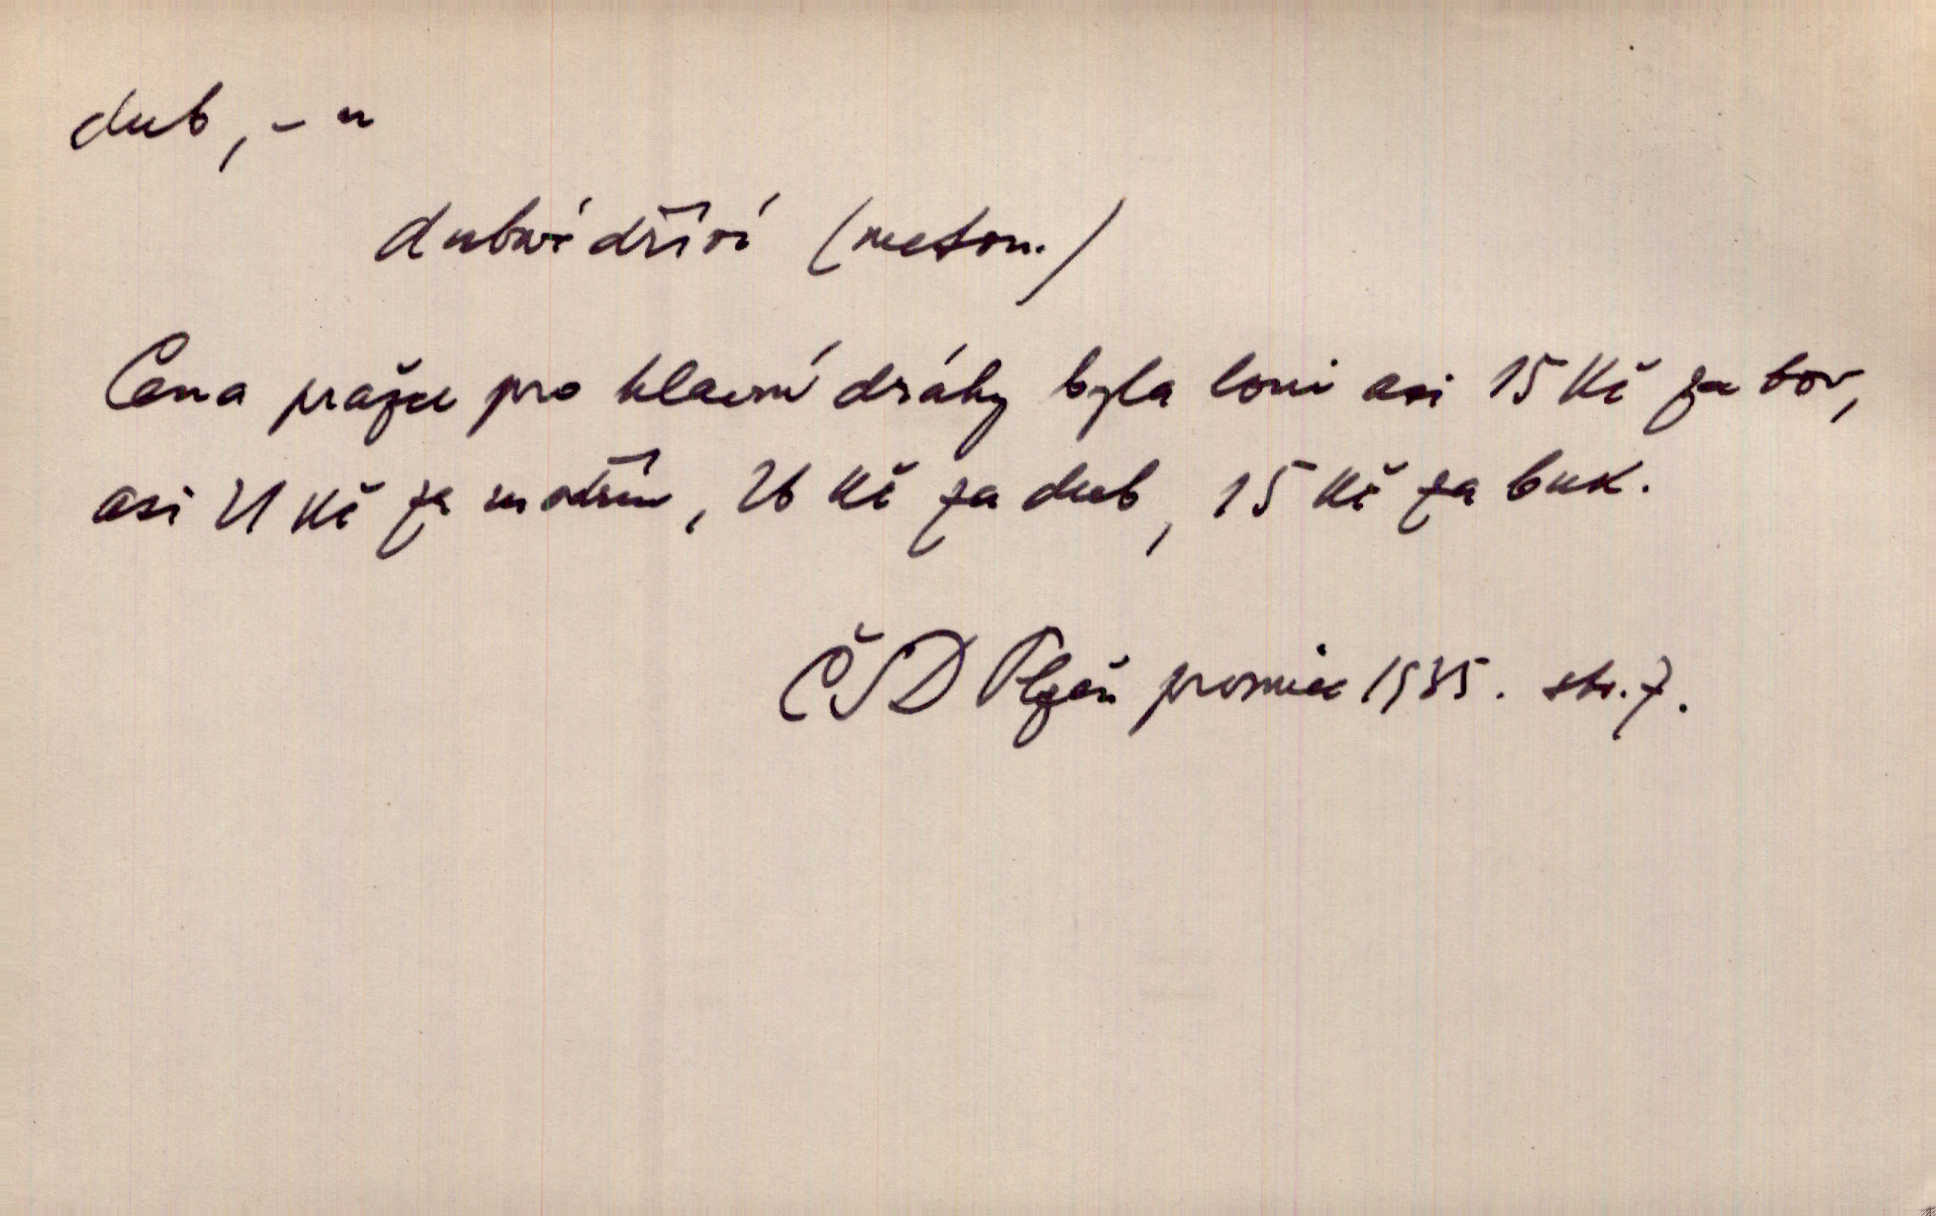 dub, -u
dubové dříví (meton.)
Cena pražce pro hlavní dráhy byla loni asi 15 Kč za bor,
asi 21 Kč za modřín, 26 Kč za dub, 15 Kč za buk.
ČSD Plzeň prosinec 1935. str. 7.